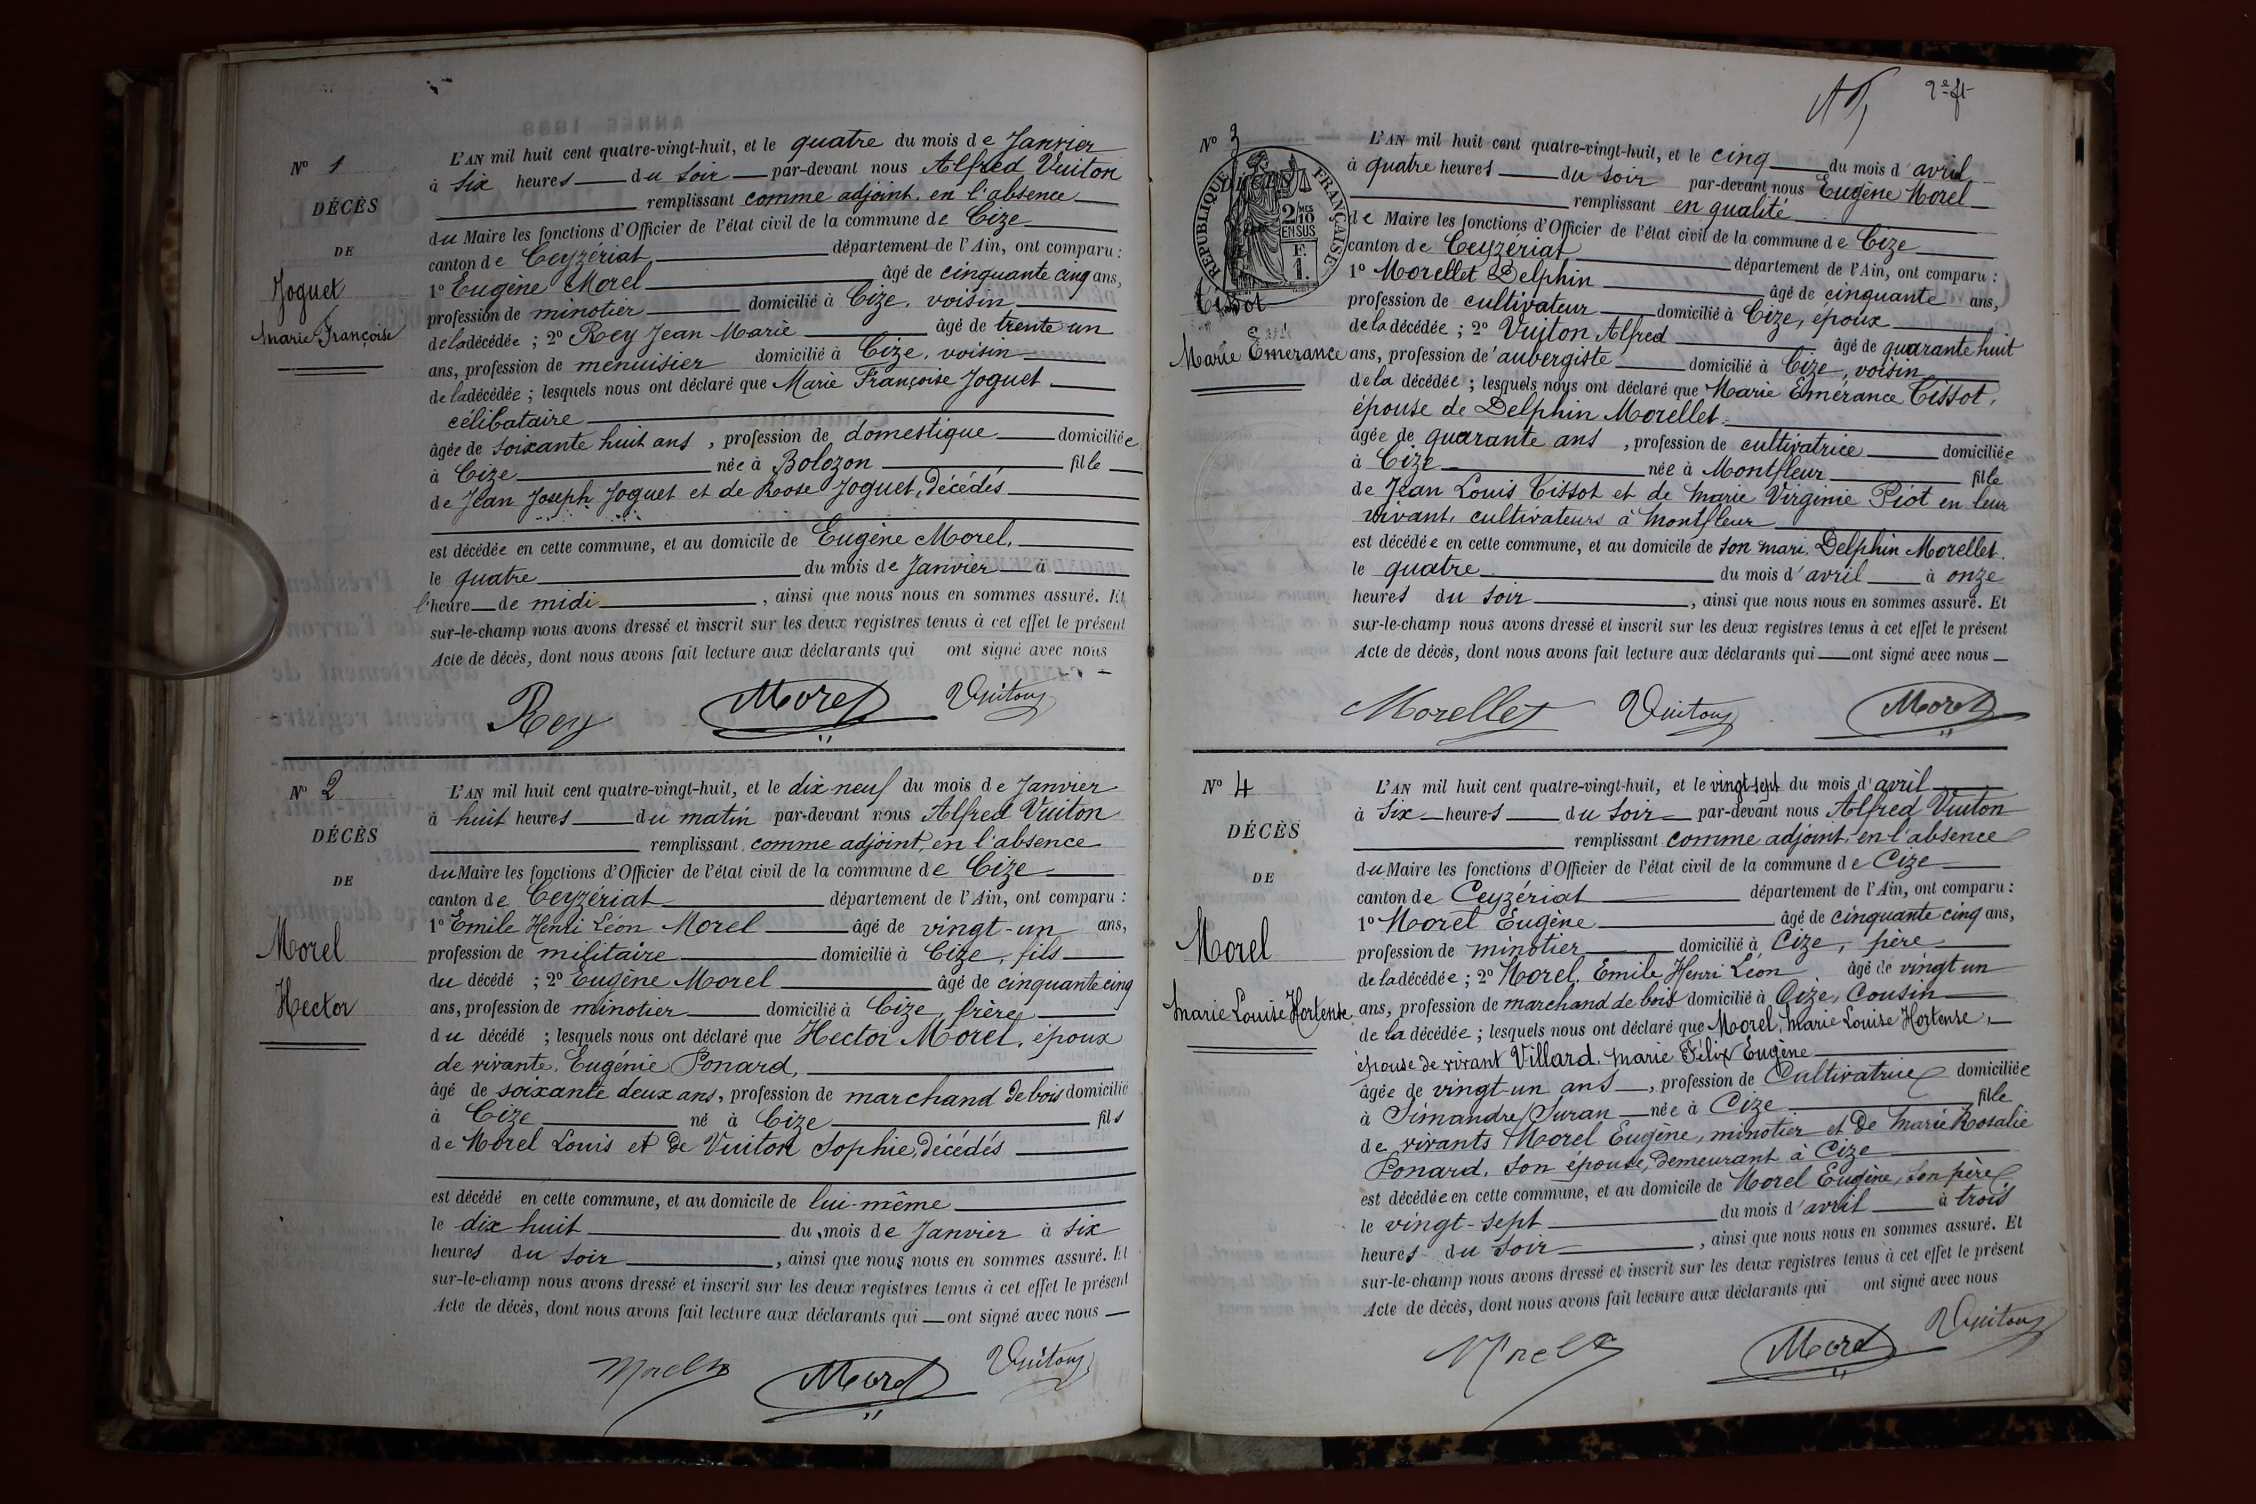 N° 1
DÉCÈS
DE
Joguet
Marie Françoise
L'AN mil huit cent quatre-vingt-huit, et le quatre du mois de Janvier
à six heures du soir par-devant nous Alfred Vuiton
remplissant comme adjoint, en l'absence
du Maire les fonctions d'Officier de l'état civil de la commune de Cize
canton de Ceyzériat département de l'Ain, ont comparu :
1° Eugène Morel âgé de cinquante cinq ans,
profession de minotier domicilié à Cize, voisin
de la décédée ; 2° Rey Jean Marie âgé de trente un
ans, profession de menuisier domicilié à Cize, voisin
de la décédée ; lesquels nous ont déclaré que Marie Françoise Joguet
célibataire
âgée de soixante huit ans, profession de domestique domiciliée
à Cize née à Bolozon fille
de Jean Joseph Joguet et de Rose Joguet, décédés
est décédée en cette commune, et au domicile de Eugène Morel,
le quatre du mois de Janvier à
l'heure de midi, ainsi que nous nous en sommes assuré. Et
sur-le-champ nous avons dressé et inscrit sur les deux registres tenus à cet effet le présent
Acte de décès, dont nous avons fait lecture aux déclarants qui ont signé avec nous
Rey Morel Vuiton
N° 2
DÉCÈS
DE
Morel
Hector
L'AN mil huit cent quatre-vingt-huit, et le dix neuf du mois de Janvier
à huit heures du matin par-devant nous Alfred Vuiton
remplissant comme adjoint, en l'absence
du Maire les fonctions d'Officier de l'état civil de la commune de Cize
canton de Ceyzériat département de l'Ain, ont comparu :
1° Emile Henri Léon Morel âgé de vingt-un ans,
profession de militaire domicilié à Cize, fils
du décédé ; 2° Eugène Morel âgé de cinquante cinq
ans, profession de minotier domicilié à Cize, frère
du décédé ; lesquels nous ont déclaré que Hector Morel, époux
de vivante, Eugénie Ponard,
âgé de soixante deux ans, profession de marchand de bois domicilié
à Cize né à Cize fils
de Morel Louis et de Vuiton Sophie, décédés
est décédé en cette commune, et au domicile de lui-même
le dix huit du mois de Janvier à six
heures du soir, ainsi que nous nous en sommes assuré. Et
sur-le-champ nous avons dressé et inscrit sur les deux registres tenus à cet effet le présent
Acte de décès, dont nous avons fait lecture aux déclarants qui ont signé avec nous
Morel Morel Vuiton
2e ft
N° 3
DÉCÈS
RÉPUBLIQUE FRANÇAISE
2/10 MES
EN SUS
F.
1.
Tissot
Marie Emerance
L'AN mil huit cent quatre-vingt-huit, et le cinq du mois d'avril
à quatre heures du soir par-devant nous Eugène Morel
remplissant en qualité
de Maire les fonctions d'Officier de l'état civil de la commune de Cize
canton de Ceyzériat département de l'Ain, ont comparu :
1° Morellet Delphin âgé de cinquante ans,
profession de cultivateur domicilié à Cize, époux
de la décédée ; 2° Vuiton Alfred âgé de quarante huit
ans, profession d'aubergiste domicilié à Cize, voisin
de la décédée ; lesquels nous ont déclaré que Marie Emérance Tissot,
épouse de Delphin Morellet,
âgée de quarante ans, profession de cultivatrice domiciliée
à Cize née à Montfleur fille
de Jean Louis Tissot et de Marie Virginie Piot en leur
vivant, cultivateurs à Montfleur
est décédée en cette commune, et au domicile de son mari, Delphin Morellet.
le quatre du mois d'avril à onze
heures du soir, ainsi que nous nous en sommes assuré. Et
sur-le-champ nous avons dressé et inscrit sur les deux registres tenus à cet effet le présent
Acte de décès, dont nous avons fait lecture aux déclarants qui ont signé avec nous
Morellet Vuiton Morel
N° 4
DÉCÈS
DE
Morel
Marie Louise Hortense
L'AN mil huit cent quatre-vingt-huit, et le vingt-sept du mois d'avril
à six heures du soir par-devant nous Alfred Vuiton
remplissant comme adjoint, en l'absence
du Maire les fonctions d'Officier de l'état civil de la commune de Cize
canton de Ceyzériat département de l'Ain, ont comparu :
1° Morel Eugène âgé de cinquante cinq ans,
profession de minotier domicilié à Cize, père
de la décédée ; 2° Morel, Emile Henri Léon âgé de vingt un
ans, profession de marchand de bois domicilié à Cize, Cousin
de la décédée ; lesquels nous ont déclaré que Morel, Marie Louise Hortense,
épouse de vivant Villard, Marie Félix Eugène
âgée de vingt-un ans, profession de Cultivatrice domiciliée
à Simandre/Suran née à Cize fille
de vivants Morel Eugène, minotier et de Marie Rosalie
Ponard, son épouse, demeurant à Cize
est décédée en cette commune, et au domicile de Morel Eugène, son père
le vingt-sept du mois d'avril à trois
heures du soir, ainsi que nous nous en sommes assuré. Et
sur-le-champ nous avons dressé et inscrit sur les deux registres tenus à cet effet le présent
Acte de décès, dont nous avons fait lecture aux déclarants qui ont signé avec nous
Morel Morel Vuiton